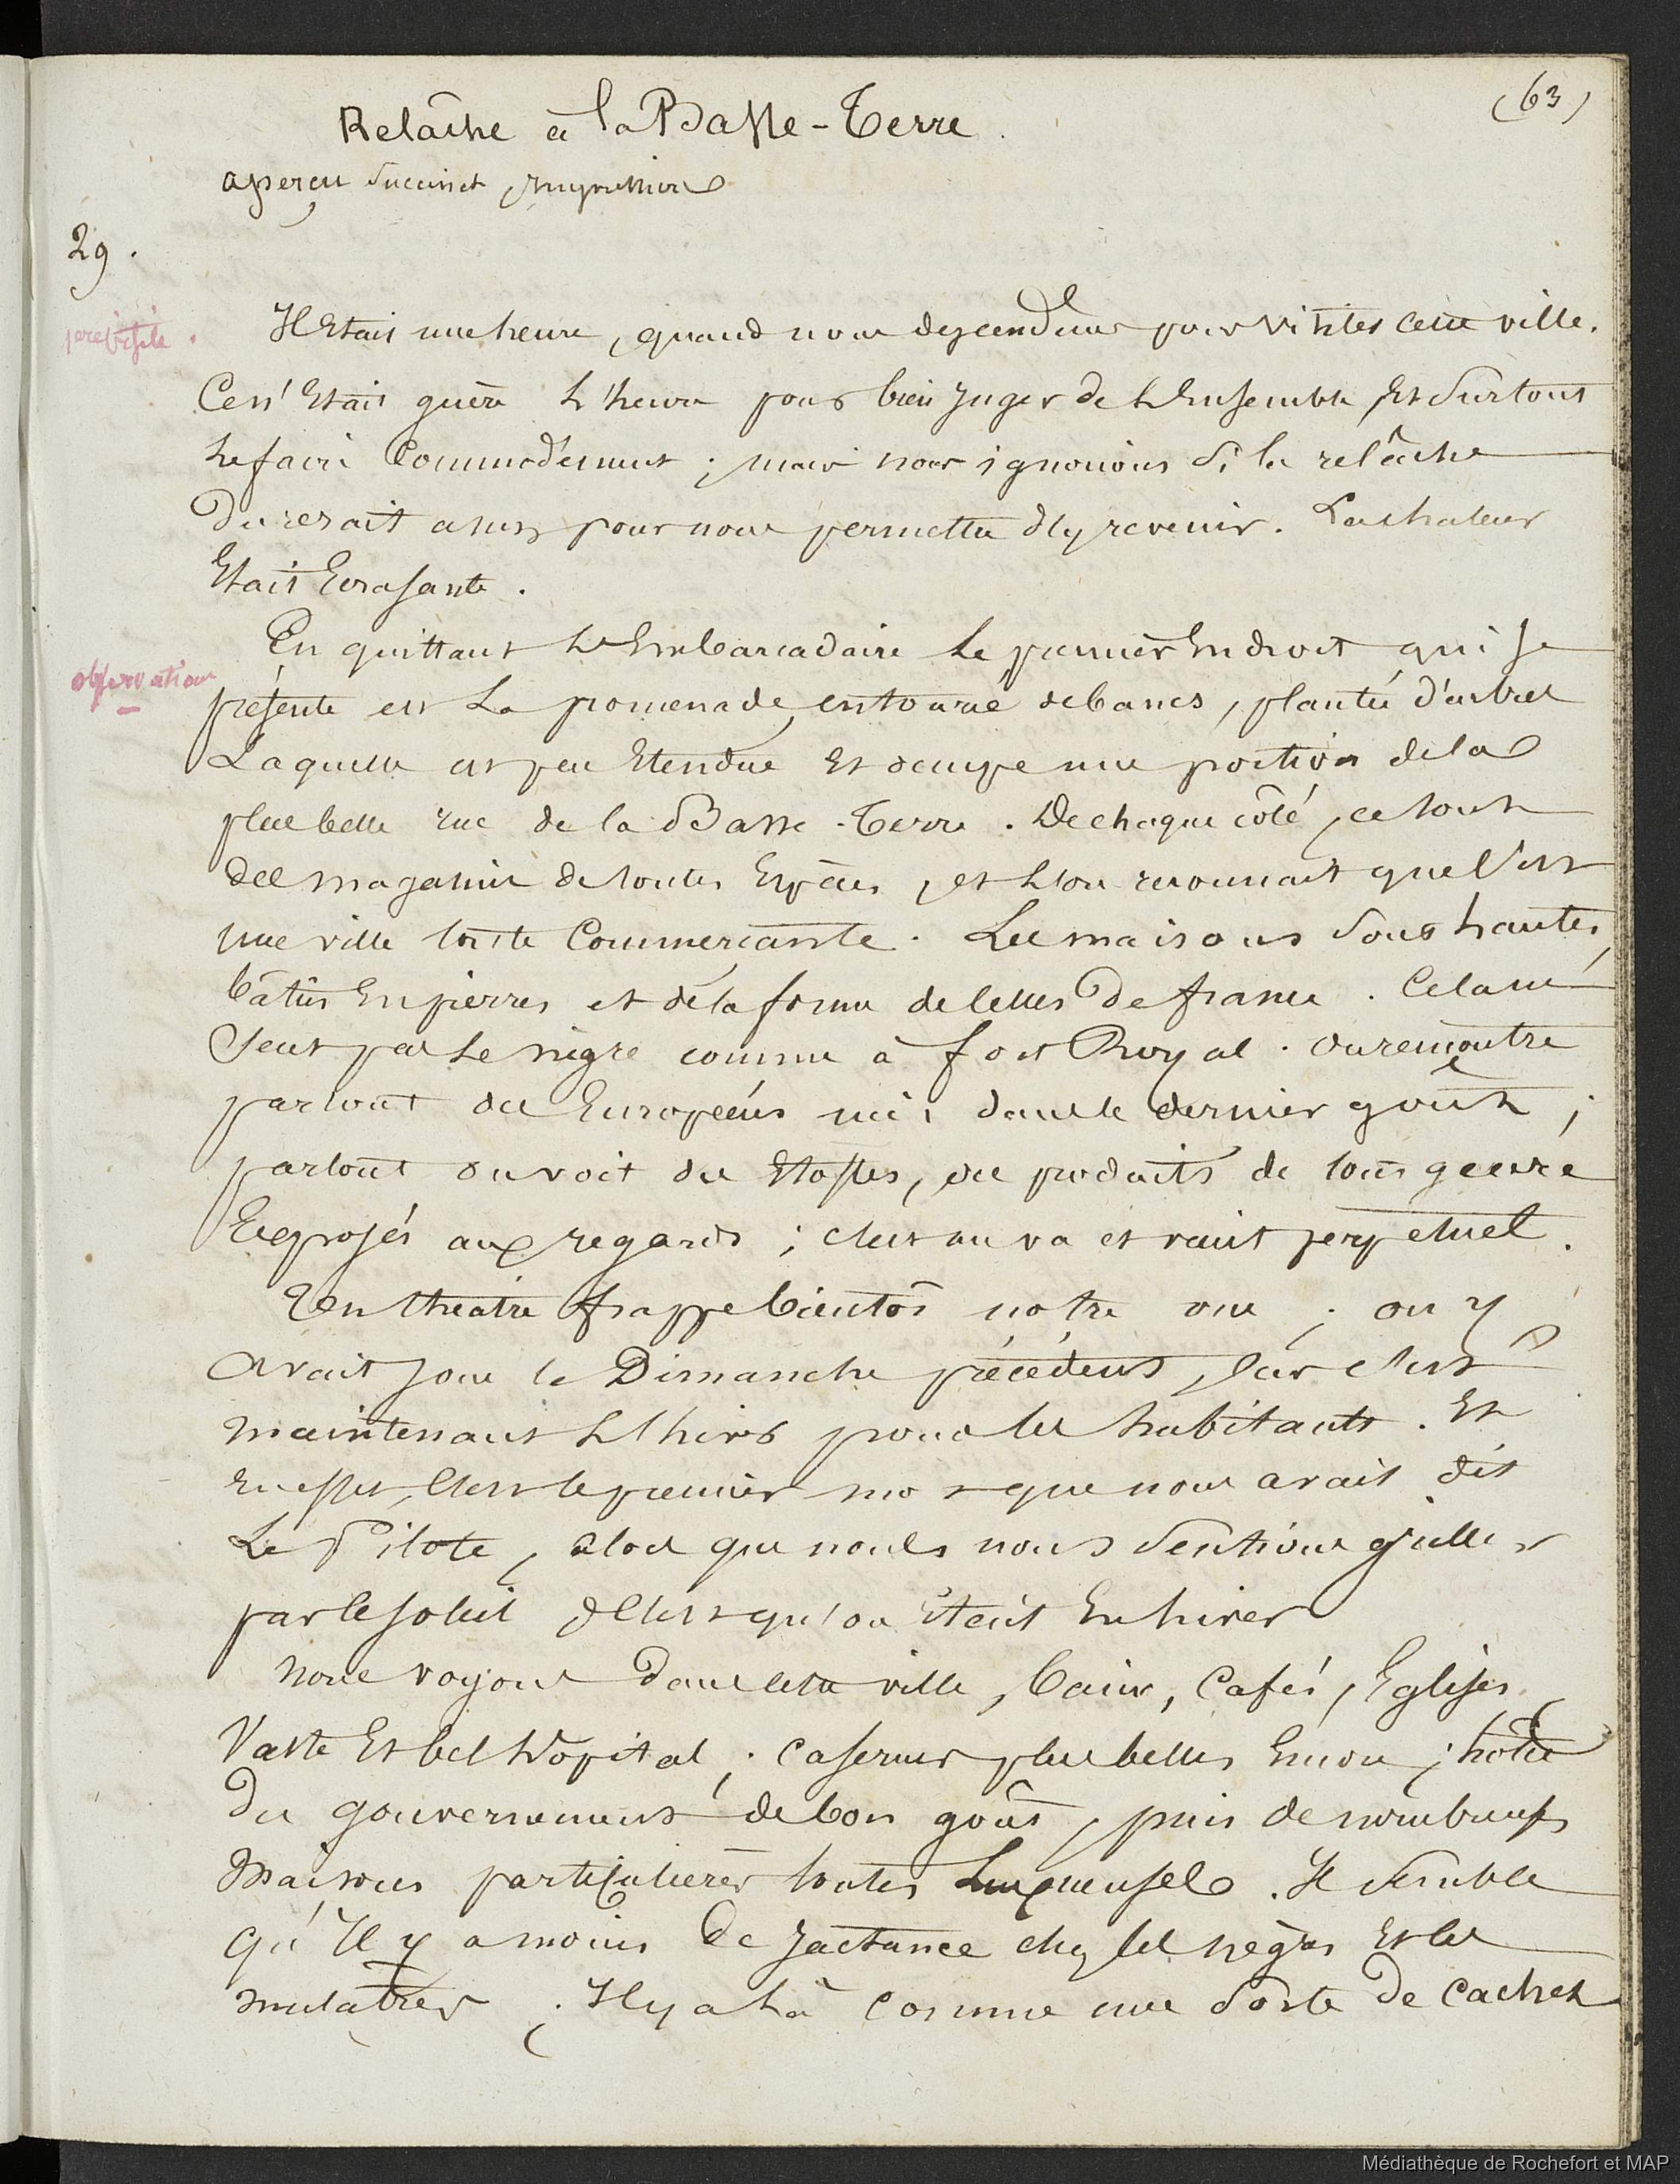 (63)
Relâche à la Basse-Terre.
aperçu Succinct, impressions
29.
Il Etait une heure, quand nous descendîmes pour visiter cette ville.
Ce n'Etait guère l'heure pour bien juger de l'Ensemble, Et Surtout
le faire Commodément ; mais nous ignorions Si la relâche
Durerait assez pour nous permettre d'y revenir. La chaleur
Etait Ecrasante.
observation
En quittant L'Embarcadaire Le premier Endroit qui se
présente est La promenade, entourée de bancs, plantée d'arbres
Laquelle est peu Etendue Et occupe une portion de la
plus belle rue de la Basse-Terre. De chaque côté, ce sont
des magasins de toutes Espèces, et l'on reconnait que c'est
une ville toute Commerçante. Les maisons Sont hautes,
bâties En pierres et de la forme de celles De france. Cela ne
Sent pas Le nègre comme à fort Royal. On rencontre
partout des Européens mis dans le dernier goût ;
partout on voit des Etoffes, des produits de tous genre
Exposés aux regards ; c'est un va et vient perpetuel.
Un théatre frappe bientôt notre vue ; on y
avait joué le Dimanche précédent, car c'est
maintenant L'hiver pour les habitants. Et
En effet, c'est le premier mot que nous avait dit
Le Pilote, alors que nous nous Sentions griller
par le soleil c'est qu'on était En hiver
Nous voyons dans cette ville, bains, Cafés, Eglises,
Vaste Et bel hôpital ; casernes plus belles Encore ; hôtel
Du gouvernement de bon goût, puis de nombreuses
Maisons particulières toutes Luxueuses. Il Semble
qu'Il y a moins De jactance chez les nègres Et les
mulatres ; Il y a là comme une Sorte De cachet
Médiathèque de Rochefort et MAP